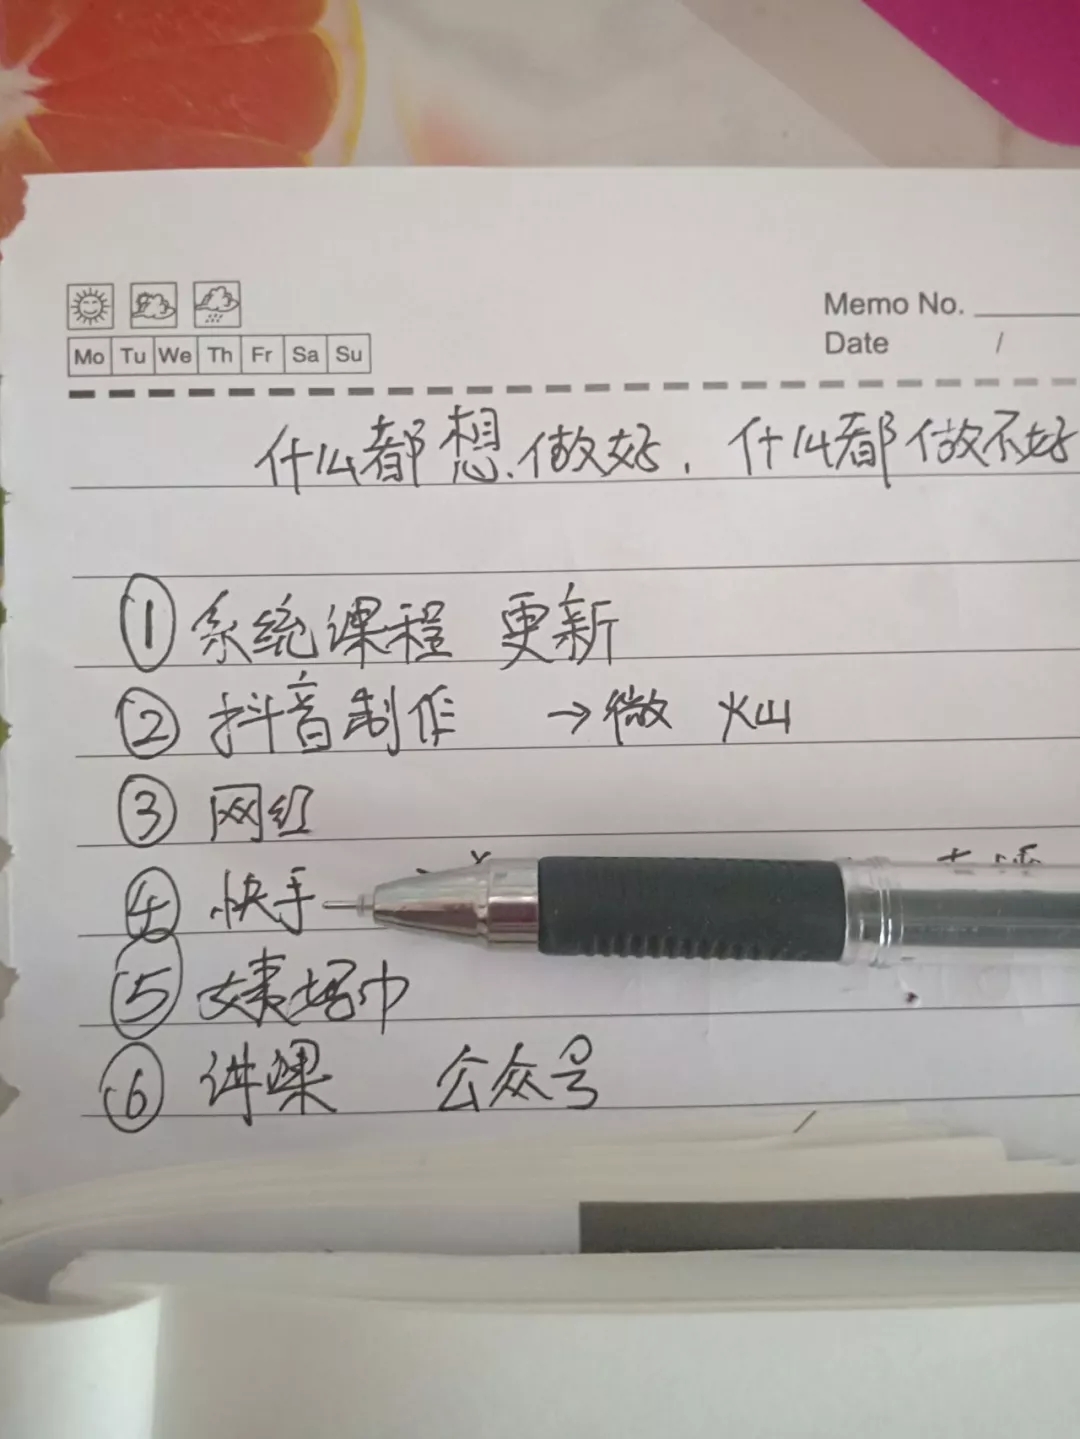 Memo No.
Mo Tu We Th Fr Sa Su
Date /
什么都想做好，什么都做不好
① 系统课程 更新
② 抖音制作 →微 火山
③ 网红
④ 快手
⑤
⑥ 讲课 公众号